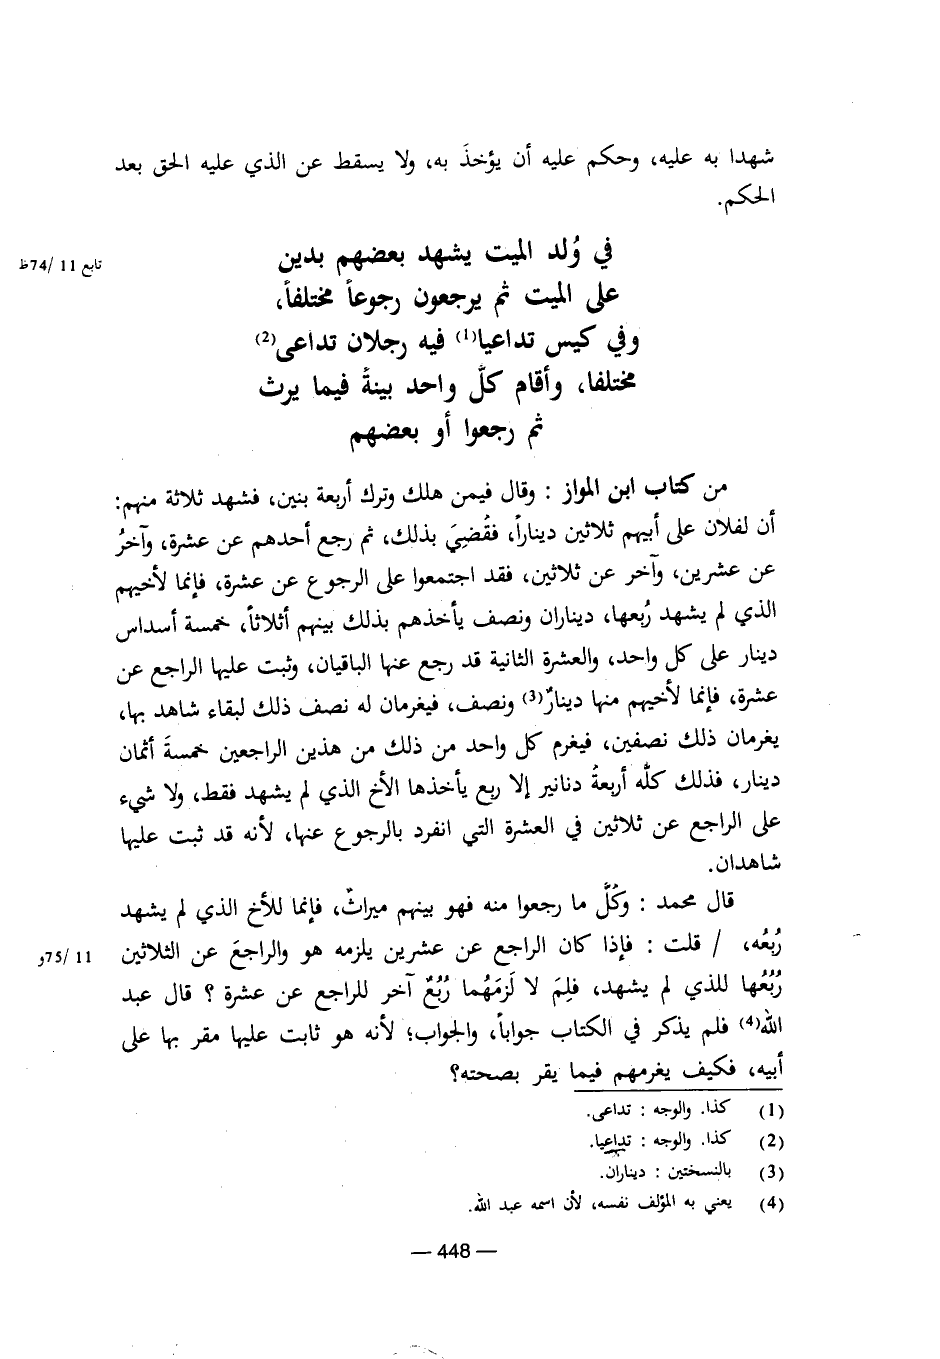 شهدا به عليه، وحكم عليه أن يؤخذَ به، ولا يسقط عن الذي عليه الحق بعد
الحكم.
في وُلد الميت يشهد بعضهم بدين
تابع 11 /74ظ
على الميت ثم يرجعون رجوعاً مختلفاً،
وفي كيس تداعيا(1) فيه رجلان تداعى(2)
مختلفا، وأقام كلُّ واحد بينةً فيما يرث
ثم رجعوا أو بعضهم
من كتاب ابن المواز : وقال فيمن هلك وترك أربعة بنين، فشهد ثلاثة منهم:
أن لفلان على أبيهم ثلاثين ديناراً، فقُضِيَ بذلك، ثم رجع أحدهم عن عشرة، وآخرُ
عن عشرين، وآخر عن ثلاثين، فقد اجتمعوا على الرجوع عن عشرة، فإنما لأخيهم
الذي لم يشهد رُبعها، ديناران ونصف يأخذهم بذلك بينهم أثلاثاً، خمسة أسداس
دينار على كل واحد، والعشرة الثانية قد رجع عنها الباقيان، وثبت عليها الراجع عن
عشرة، فإنما لأخيهم منها دينارٌ(3) ونصف، فيغرمان له نصف ذلك لبقاء شاهد بها،
يغرمان ذلك نصفين، فيغرم كل واحد من ذلك من هذين الراجعين خمسةَ أثمان
دينار، فذلك كلُّه أربعةُ دنانير إلا ربع يأخذها الأخ الذي لم يشهد فقط، ولا شيء
على الراجع عن ثلاثين في العشرة التي انفرد بالرجوع عنها، لأنه قد ثبت عليها
شاهدان.
قال محمد : وكُلُّ ما رجعوا منه فهو بينهم ميراثٌ، فإنما للأخ الذي لم يشهد
رُبعُه، / قلت : فإذا كان الراجع عن عشرين يلزمه هو والراجعَ عن الثلاثين
11 /75و
رُبُعُها للذي لم يشهد، فلِمَ لا لَزمَهُما رُبُعٌ آخر للراجع عن عشرة ؟ قال عبد
الله(4) فلم يذكر في الكتاب جواباً، والجواب؛ لأنه هو ثابت عليها مقر بها على
أبيه، فكيف يغرمهم فيما يقر بصحته؟
(1) كذا. والوجه : تداعى.
(2) كذا. والوجه : تداعيا.
(3) بالنسختين : ديناران.
(4) يعني به المؤلف نفسه، لأن اسمه عبد الله.
— 448 —